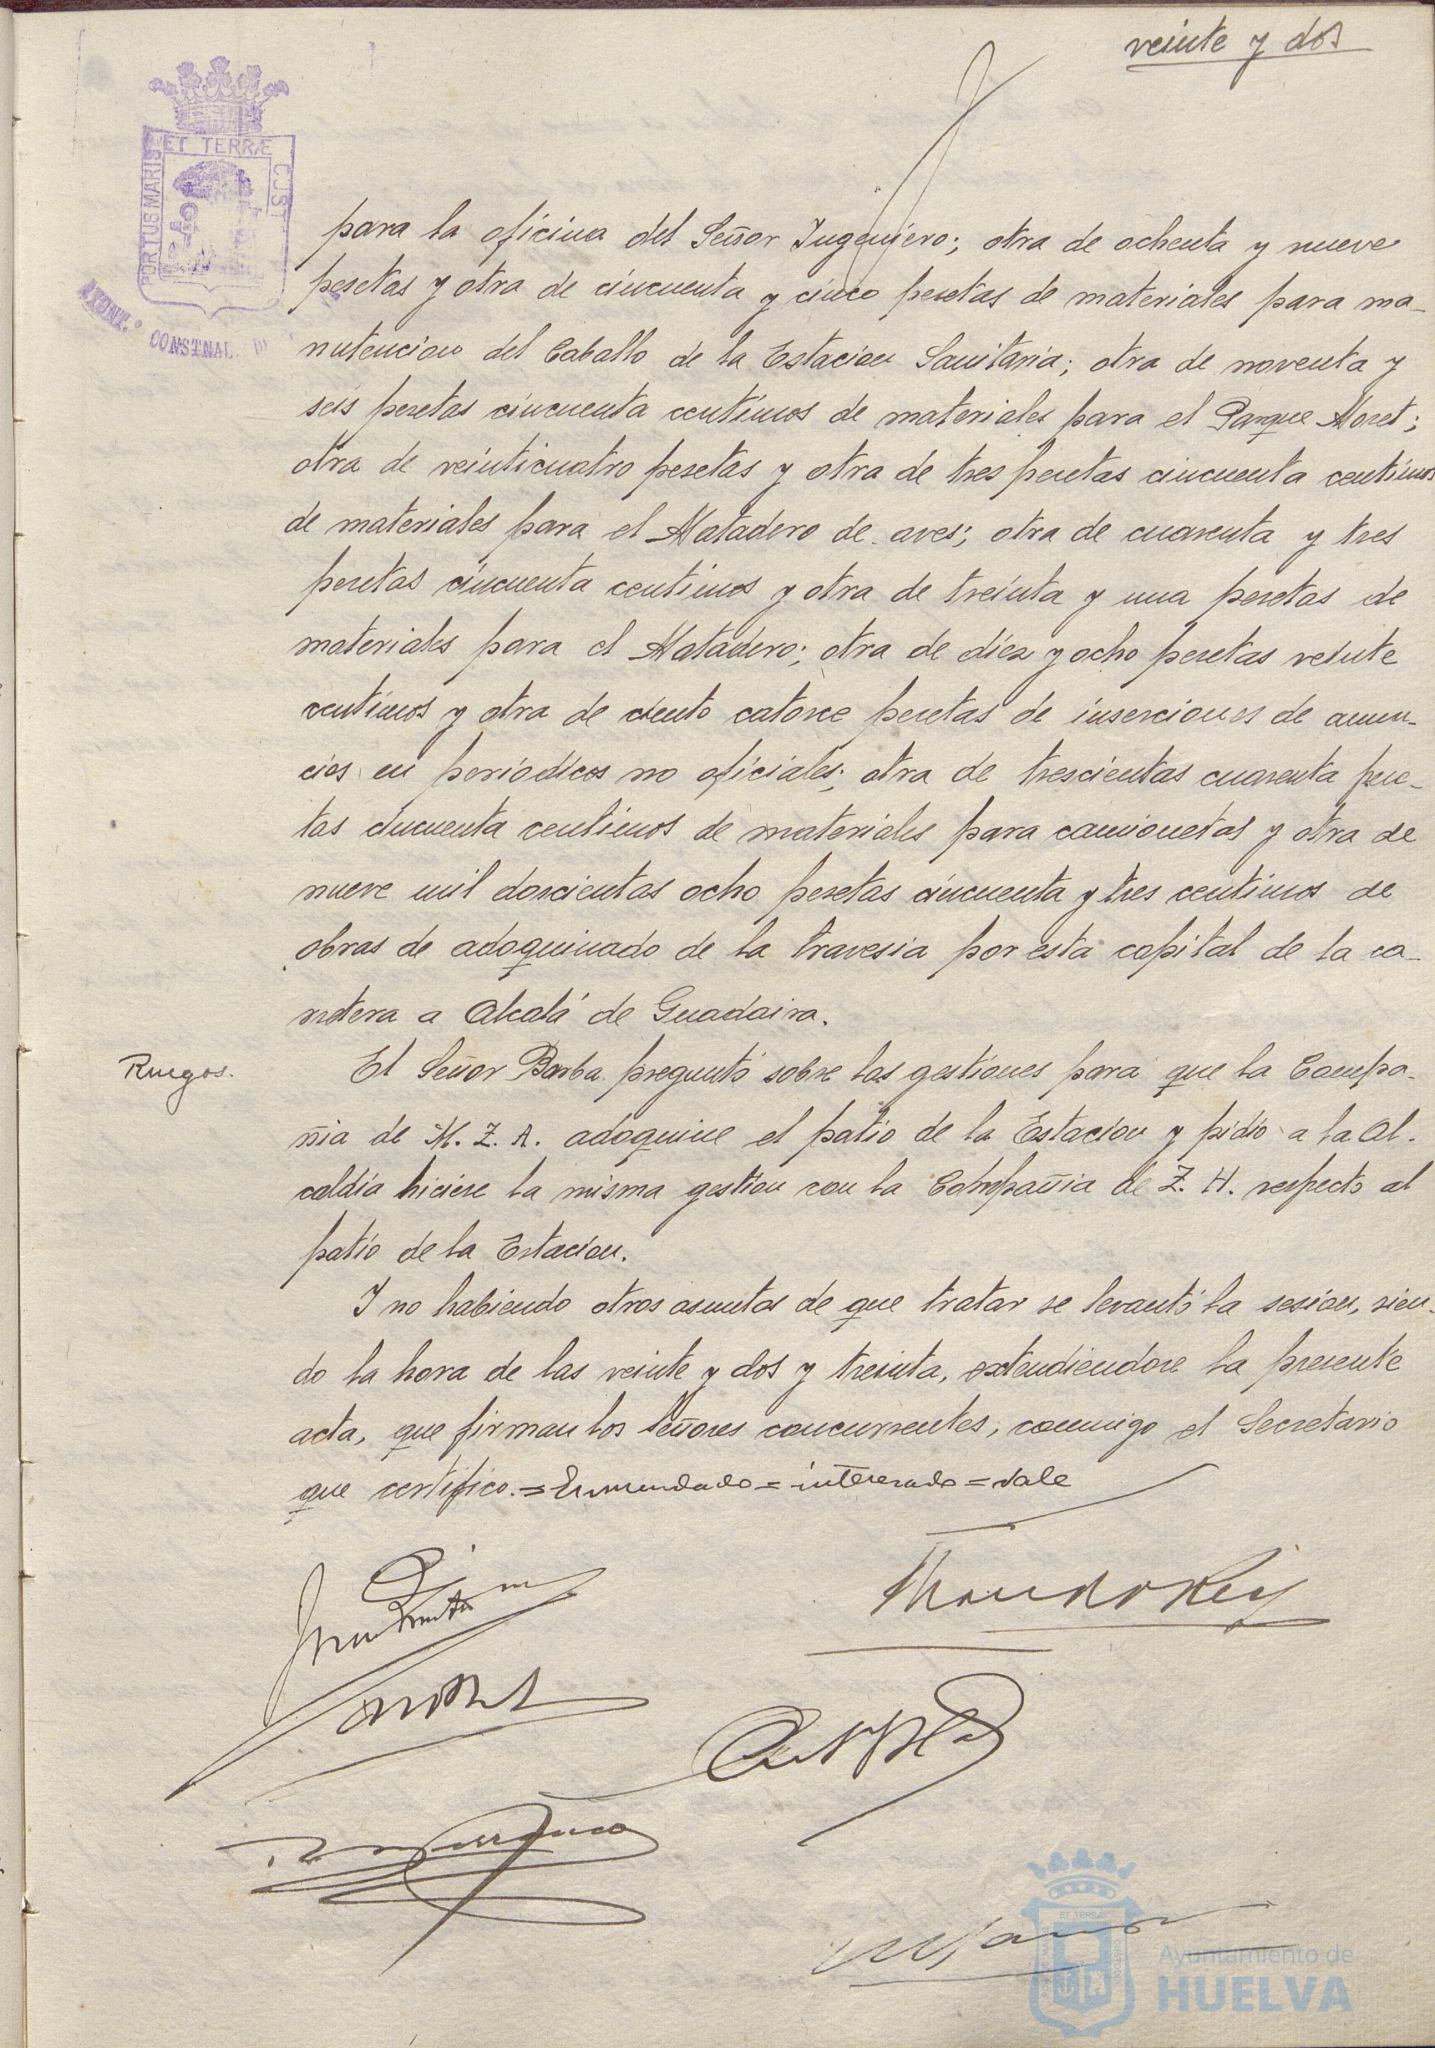 veinte y dos
PORTUS MARIS ET TERRÆ CUST
AYUNT.º CONSTNAL. DE
para la oficina del Señor Ingeniero; otra de ochenta y nueve
pesetas y otra de cincuenta y cinco pesetas de materiales para ma-
nutencion del Caballo de la Estacion Sanitaria; otra de noventa y
seis pesetas cincuenta centimos de materiales para el Parque Moret;
otra de veinticuatro pesetas y otra de tres pesetas cincuenta centimos
de materiales para el Matadero de aves; otra de cuarenta y tres
pesetas cincuenta centimos y otra de treinta y una pesetas de
materiales para el Matadero; otra de diez y ocho pesetas veinte
centimos y otra de ciento catorce pesetas de inserciones de anun-
cios en periodicos no oficiales; otra de trescientas cuarenta pese-
tas cincuenta centimos de materiales para camionetas y otra de
nueve mil doscientas ocho pesetas cincuenta y tres centimos de
obras de adoquinado de la travesia por esta capital de la ca-
rretera a Alcalá de Guadaira.
Ruegos.
El Señor Barba preguntó sobre las gestiones para que la Compa-
ñia de M. Z. A. adoquine el patio de la Estacion y pidió a la Al-
caldía hiciese la misma gestion con la Compañia de Z. H. respecto al
patio de la Estacion.
Y no habiendo otros asuntos de que tratar se levantó la sesion, sien-
do la hora de las veinte y dos y treinta, extendiendose la presente
acta, que firman los Señores concurrentes, conmigo el Secretario
que certifico. = Enmendado = interesado = vale
ET TERRA
Ayuntamiento de
HUELVA